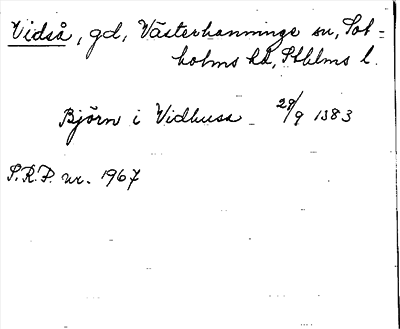 Vidså, gd, Västerhanninge sn, Sot=
holms hd, Sthlms l.
Björn i Vidhusa 29/9 1383
S.R.P. nr. 1967